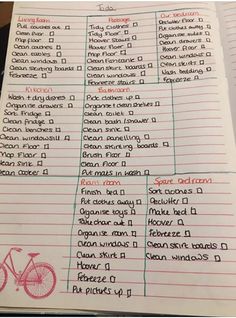 To do
Living Room
Pull couches out
Clean Floor
Mop Floor
Clean coaches
Clean tables
Clean windows
Clean skirting boards
Febreeze
Passage
Tidy clothes
Tidy Floor
Hoover Stairs
Hoover Floor
Mop Floor
Clean skirt boards
Clean windows
Clean stairs
Febreeze
Our bedroom
Put clothes away
Organise
Clean drawers
Hoover Floor
Clean windows
Clean skirts
Wash bedding
Febreeze
Kitchen
Wash + tidy dishes
Organise drawers
Sort Fridge
Clean Fridge
Clean benches
Clean windowsill
Clean Floor
Mop Floor
Clean sink
Clean cooker
Bathroom
Pick clothes up
Organise + clean shelves
Clean toilet
Clean bath/shower
Clean sink
Clean panelling
Clean skirting boards
Brush Floor
Clean Floor
Put mats in wash
room
Finish bed
Put clothes away
Organise toys
Take chair out
Organise room
Clean windows
Clean skirt
Hoover
Febreeze
Put pictures up
Spare bedroom
Sort clothes
Declutter
Make bed
Hoover
Febreeze
Clean skirt boards
Clean windows